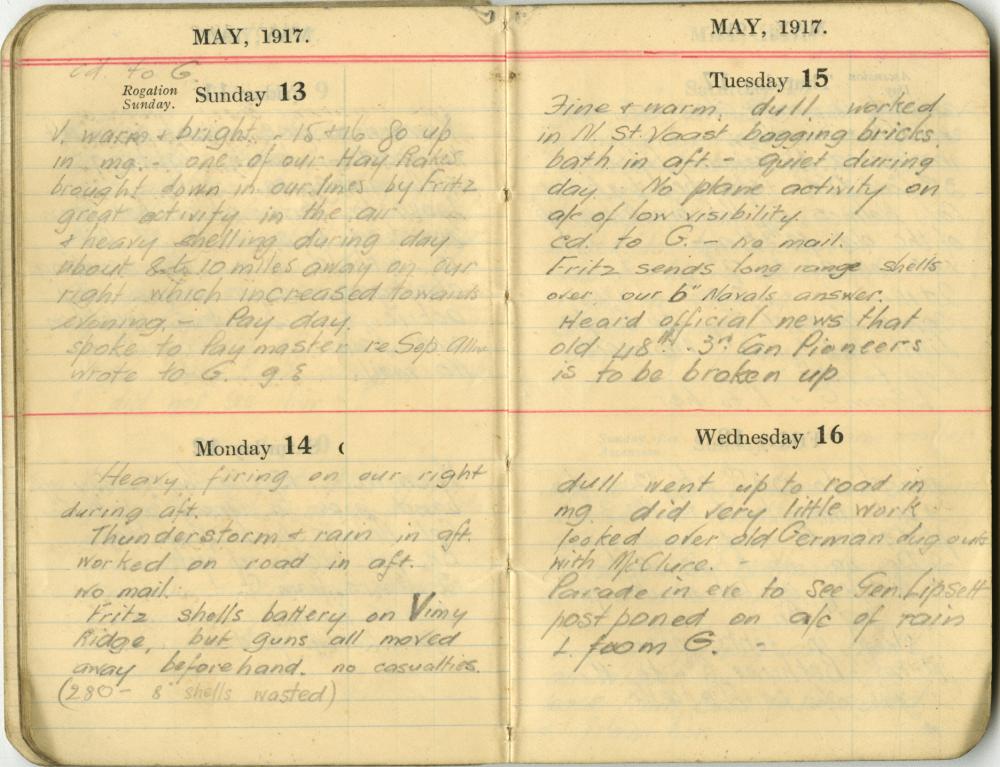 MAY, 1917.
cd. to G.
Rogation Sunday. Sunday 13
V. warm + bright. - 15 + 16 go up
in mg. - one of our Hay Rakes
brought down in our lines by Fritz
great activity in the air
+ heavy shelling during day
about 8 to 10 miles away on our
right which increased towards
evening. - Pay day.
spoke to Paymaster re Sep.
wrote to G.
Monday 14
Heavy firing on our right
during aft.
Thunderstorm + rain in aft.
worked on road in aft.
no mail.
Fritz shells battery on Vimy
Ridge, but guns all moved
away beforehand. no casualties.
(280 - 8" shells wasted)
MAY, 1917.
Tuesday 15
Fine + warm. dull worked
in N. St. Vaast bagging bricks.
bath in aft. - quiet during
day. No plane activity on
a/c of low visibility.
cd. to G. - no mail.
Fritz sends long range shells
over our 6" Navals answer.
Heard official news that
old 48th. 3rd Can Pioneers
is to be broken up
Wednesday 16
dull went up to road in
mg. did very little work
looked over old German dug outs
with McClure. -
Parade in eve to see Gen. Lipsett
postponed on a/c of rain
L. from G. -